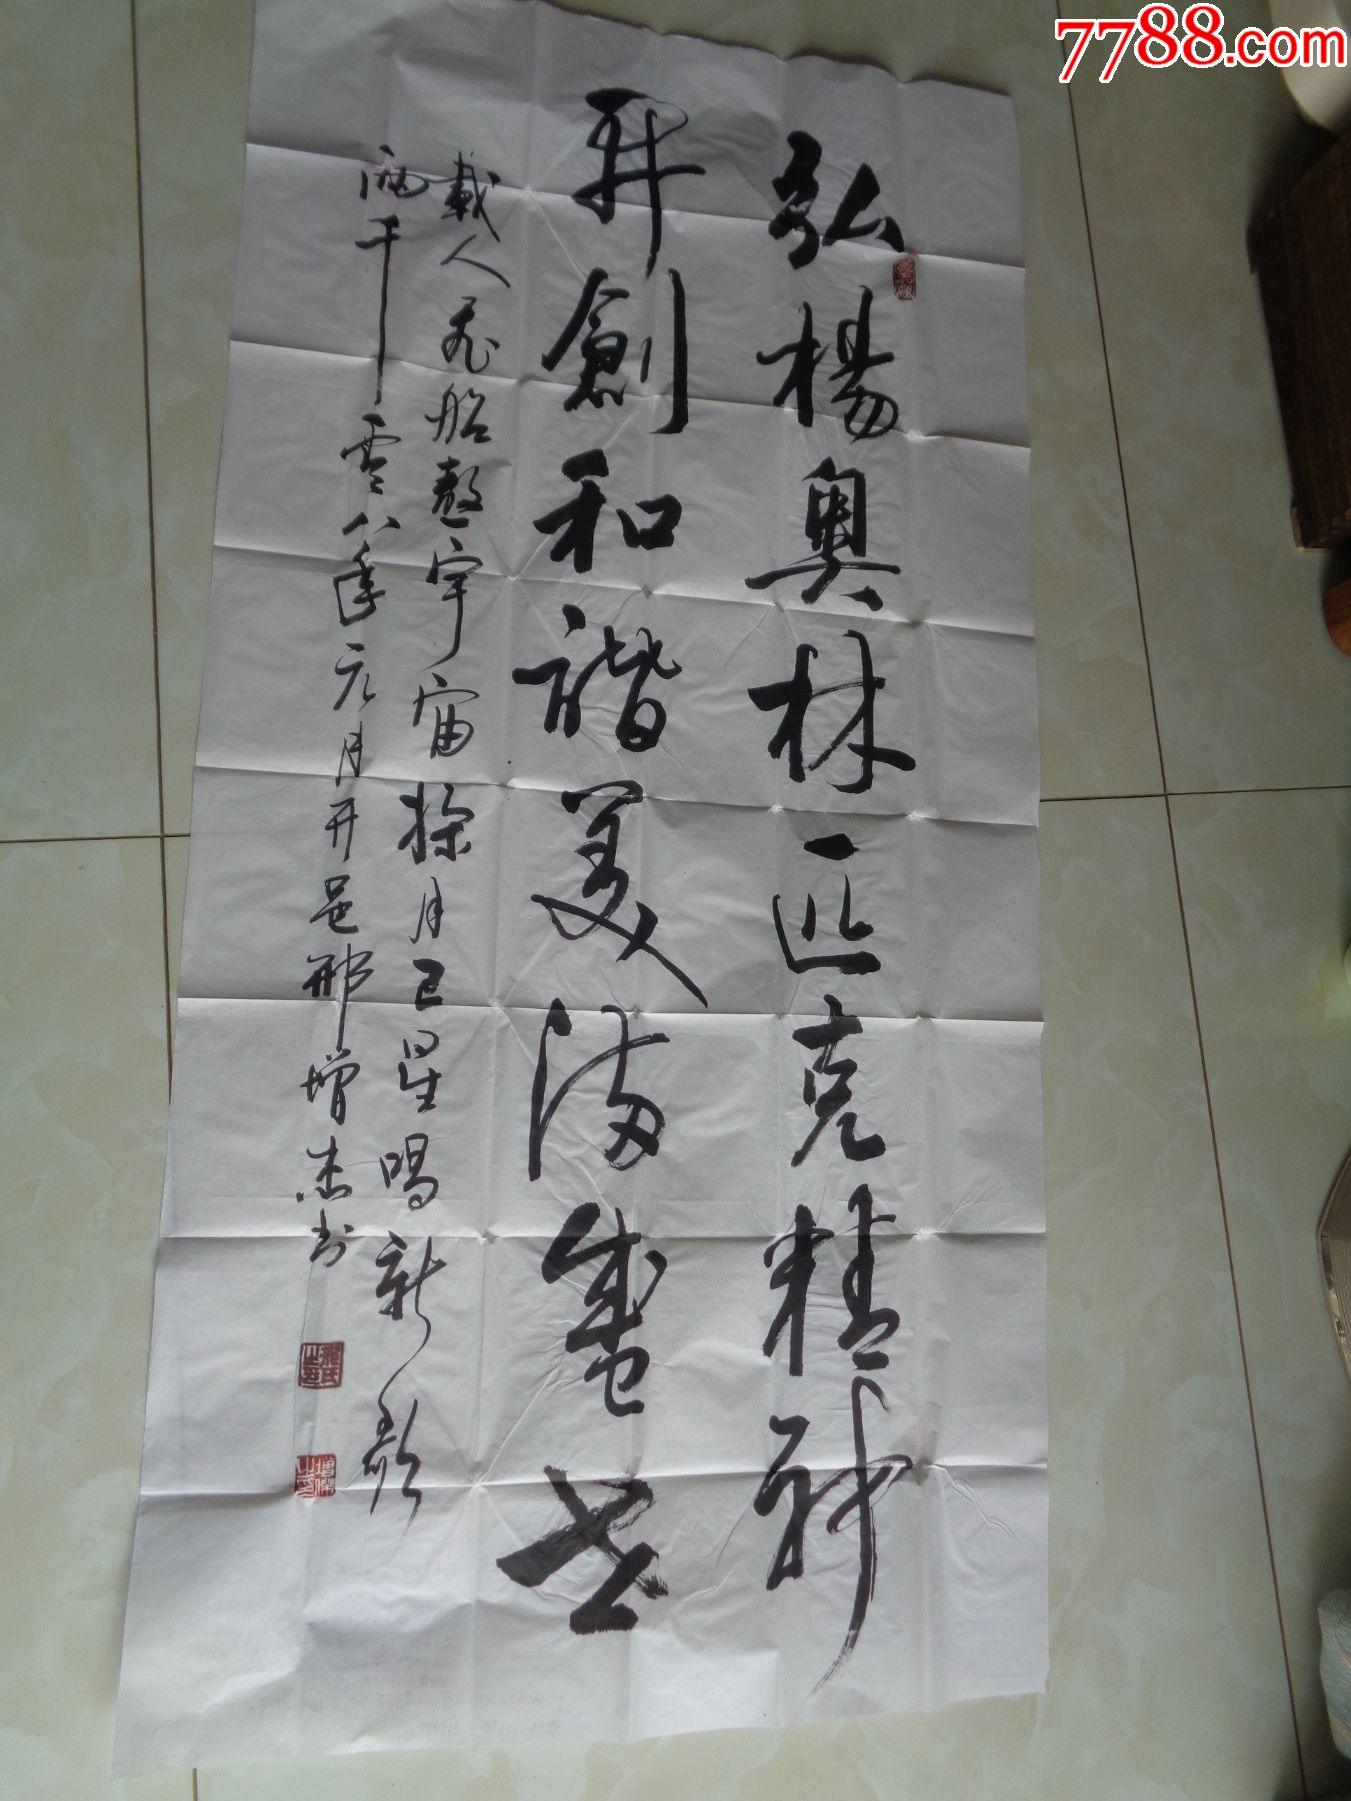 7788.com
弘楊奧林匹克精神
再創和諧美滿盛世
載人飛船遨宇宙探月卫星唱新歌
两千零八年元月开邑邢增杰书